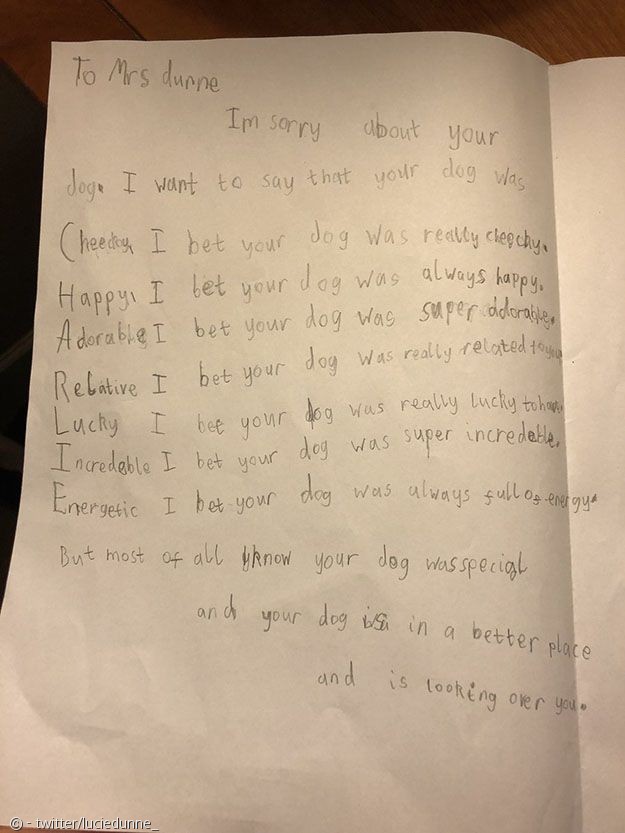 To Mrs dunne
Im sorry about your
dog. I want to say that your dog was
Cheeky, I bet your dog was really cheechy.
Happy, I bet your dog was always happy.
Adorable I bet your dog was super adorable.
Relative I bet your dog was really related to you
Lucky I bet your dog was really lucky to have
Incredable I bet your dog was super incredable.
Energetic I bet your dog was always full of energy.
But most of all I know your dog was special
and your dog is in a better place
and is looking over you.
© - twitter/luciedunne_